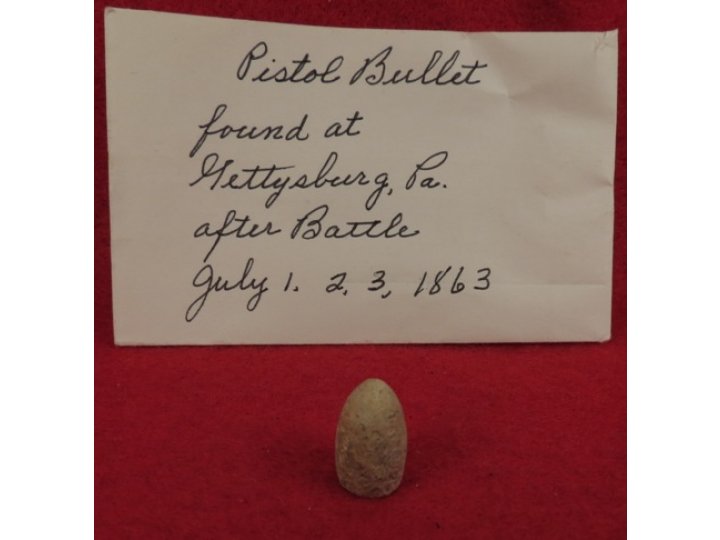 Pistol Bullet
found at
Gettysburg, Pa.
after Battle
July 1. 2. 3, 1863